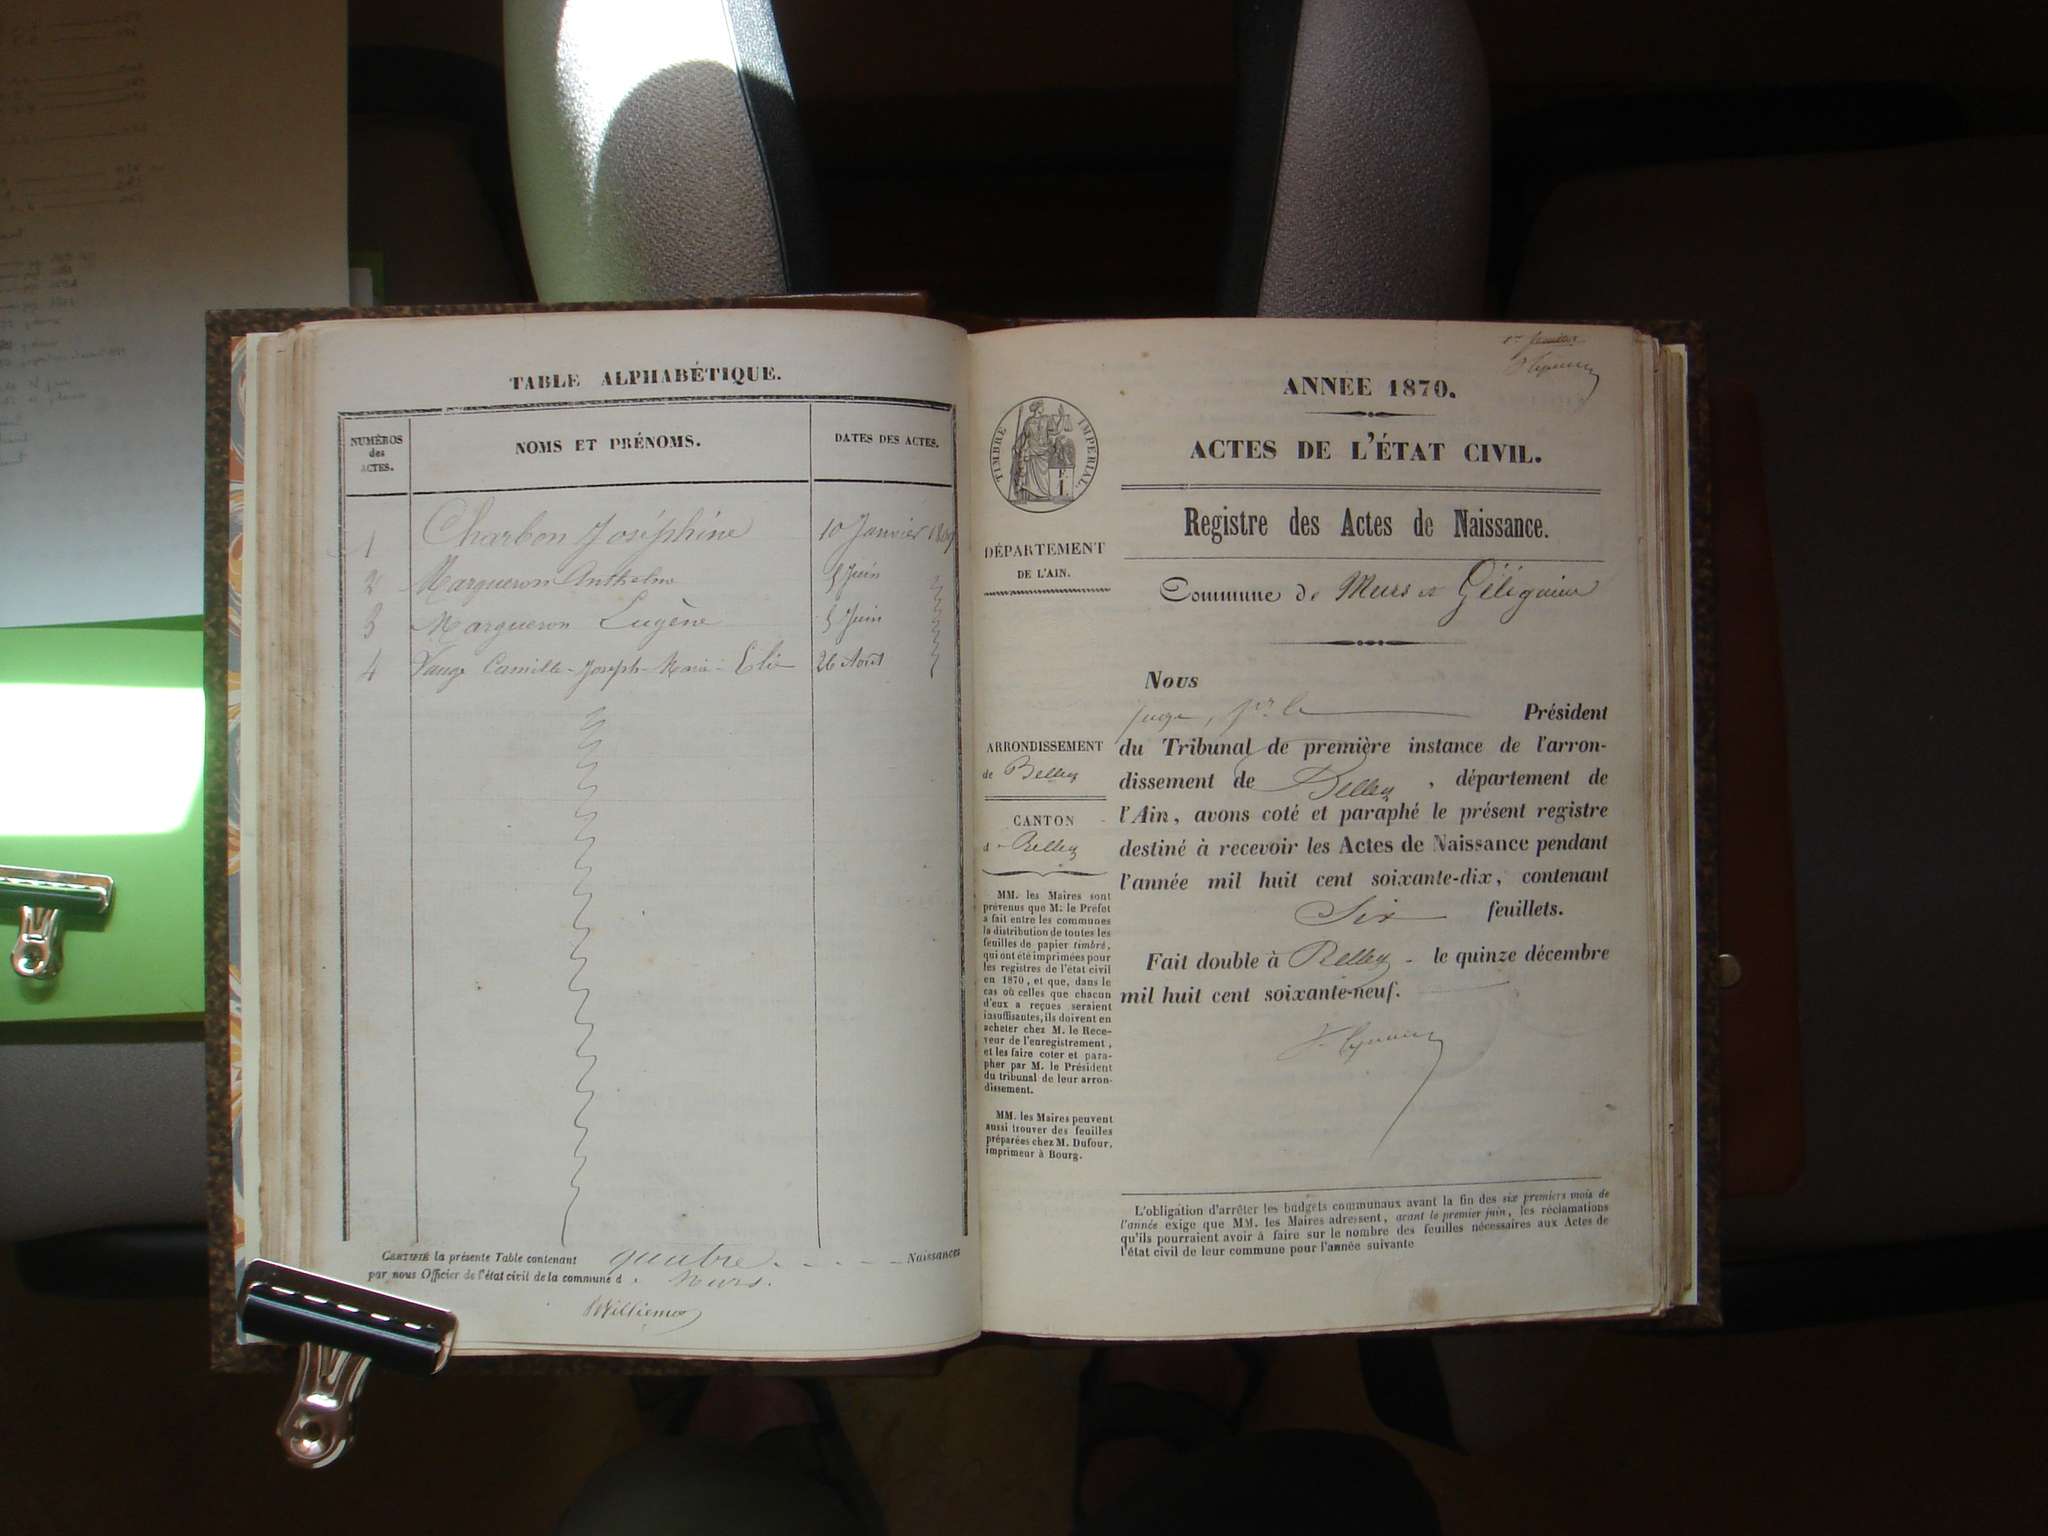 TABLE ALPHABÉTIQUE.
NUMÉROS
des
ACTES.
NOMS ET PRÉNOMS.
DATES DES ACTES.
1 Charbon Joséphine 10 Janvier 1869
2 Margueron Anthelme 5 Juin
3 Margueron Eugène 5 Juin
4 Camille-Joseph-Marie-Elie 26 Août
CERTIFIÉ la présente Table contenant quatre Naissances
par nous Officier de l'état civil de la commune d Murs.
ANNÉE 1870.
ACTES DE L'ÉTAT CIVIL.
TIMBRE IMPÉRIAL
Registre des Actes de Naissance.
DÉPARTEMENT
DE L'AIN.
Commune de Murs et Gélignieux
ARRONDISSEMENT
de Belley
CANTON
d Belley
MM. les Maires sont
prévenus que M. le Préfet
a fait entre les communes
la distribution de toutes les
feuilles de papier timbré,
qui ont été imprimées pour
les registres de l'état civil
en 1870, et que, dans le
cas où celles que chacun
d'eux a reçues seraient
insuffisantes, ils doivent en
acheter chez M. le Rece-
veur de l'enregistrement,
et les faire coter et para-
pher par M. le Président
du tribunal de leur arron-
dissement.
MM. les Maires peuvent
aussi trouver des feuilles
préparées chez M. Dufour,
imprimeur à Bourg.
Nous
juge, pr le Président
du Tribunal de première instance de l'arron-
dissement de Belley, département de
l'Ain, avons coté et paraphé le présent registre
destiné à recevoir les Actes de Naissance pendant
l'année mil huit cent soixante-dix, contenant
Six feuillets.
Fait double à Belley - le quinze décembre
mil huit cent soixante-neuf.
L'obligation d'arrêter les budgets communaux avant la fin des six premiers mois de
l'année exige que MM. les Maires adressent, avant le premier juin, les réclamations
qu'ils pourraient avoir à faire sur le nombre des feuilles nécessaires aux Actes de
l'état civil de leur commune pour l'année suivante